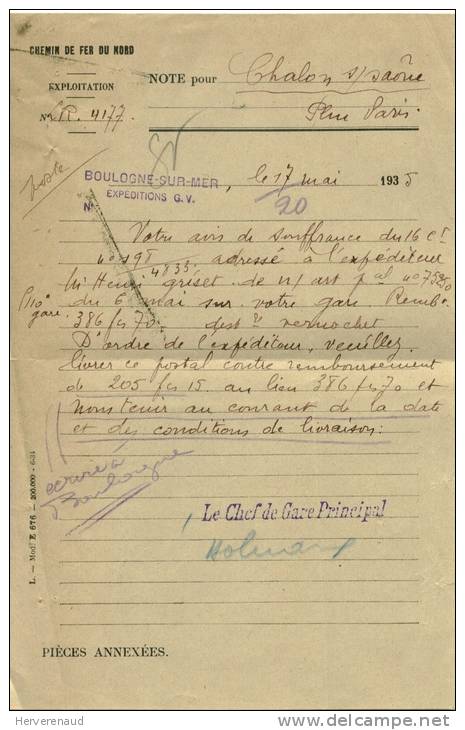 CHEMIN DE FER DU NORD
EXPLOITATION
N° R. 4177.
NOTE pour Chalon s/Saône
Plm Paris
poste
BOULOGNE-SUR-MER
EXPÉDITIONS G. V.
N°
, le 17 mai 1935
20
Votre avis de souffrance du 16 ct
n° 198 adressé à l'expéditeur
Mr Henri Griset de n/ art pal n°
4835
du 6 mai sur votre gare Remb.
gare
386 fs 70 dest re Vernochet
D'ordre de l'expéditeur, veuillez
livrer ce postal contre remboursement
de 205 fs 15 au lieu 386 fs 70 et
nous tenir au courant de la date
et des conditions de livraison.
écrire à
Boulogne
Le Chef de Gare Principal
L. — Mod. E 676 — 200.000 - 6-34
PIÈCES ANNEXÉES.
Herverenaud
delcampe.net